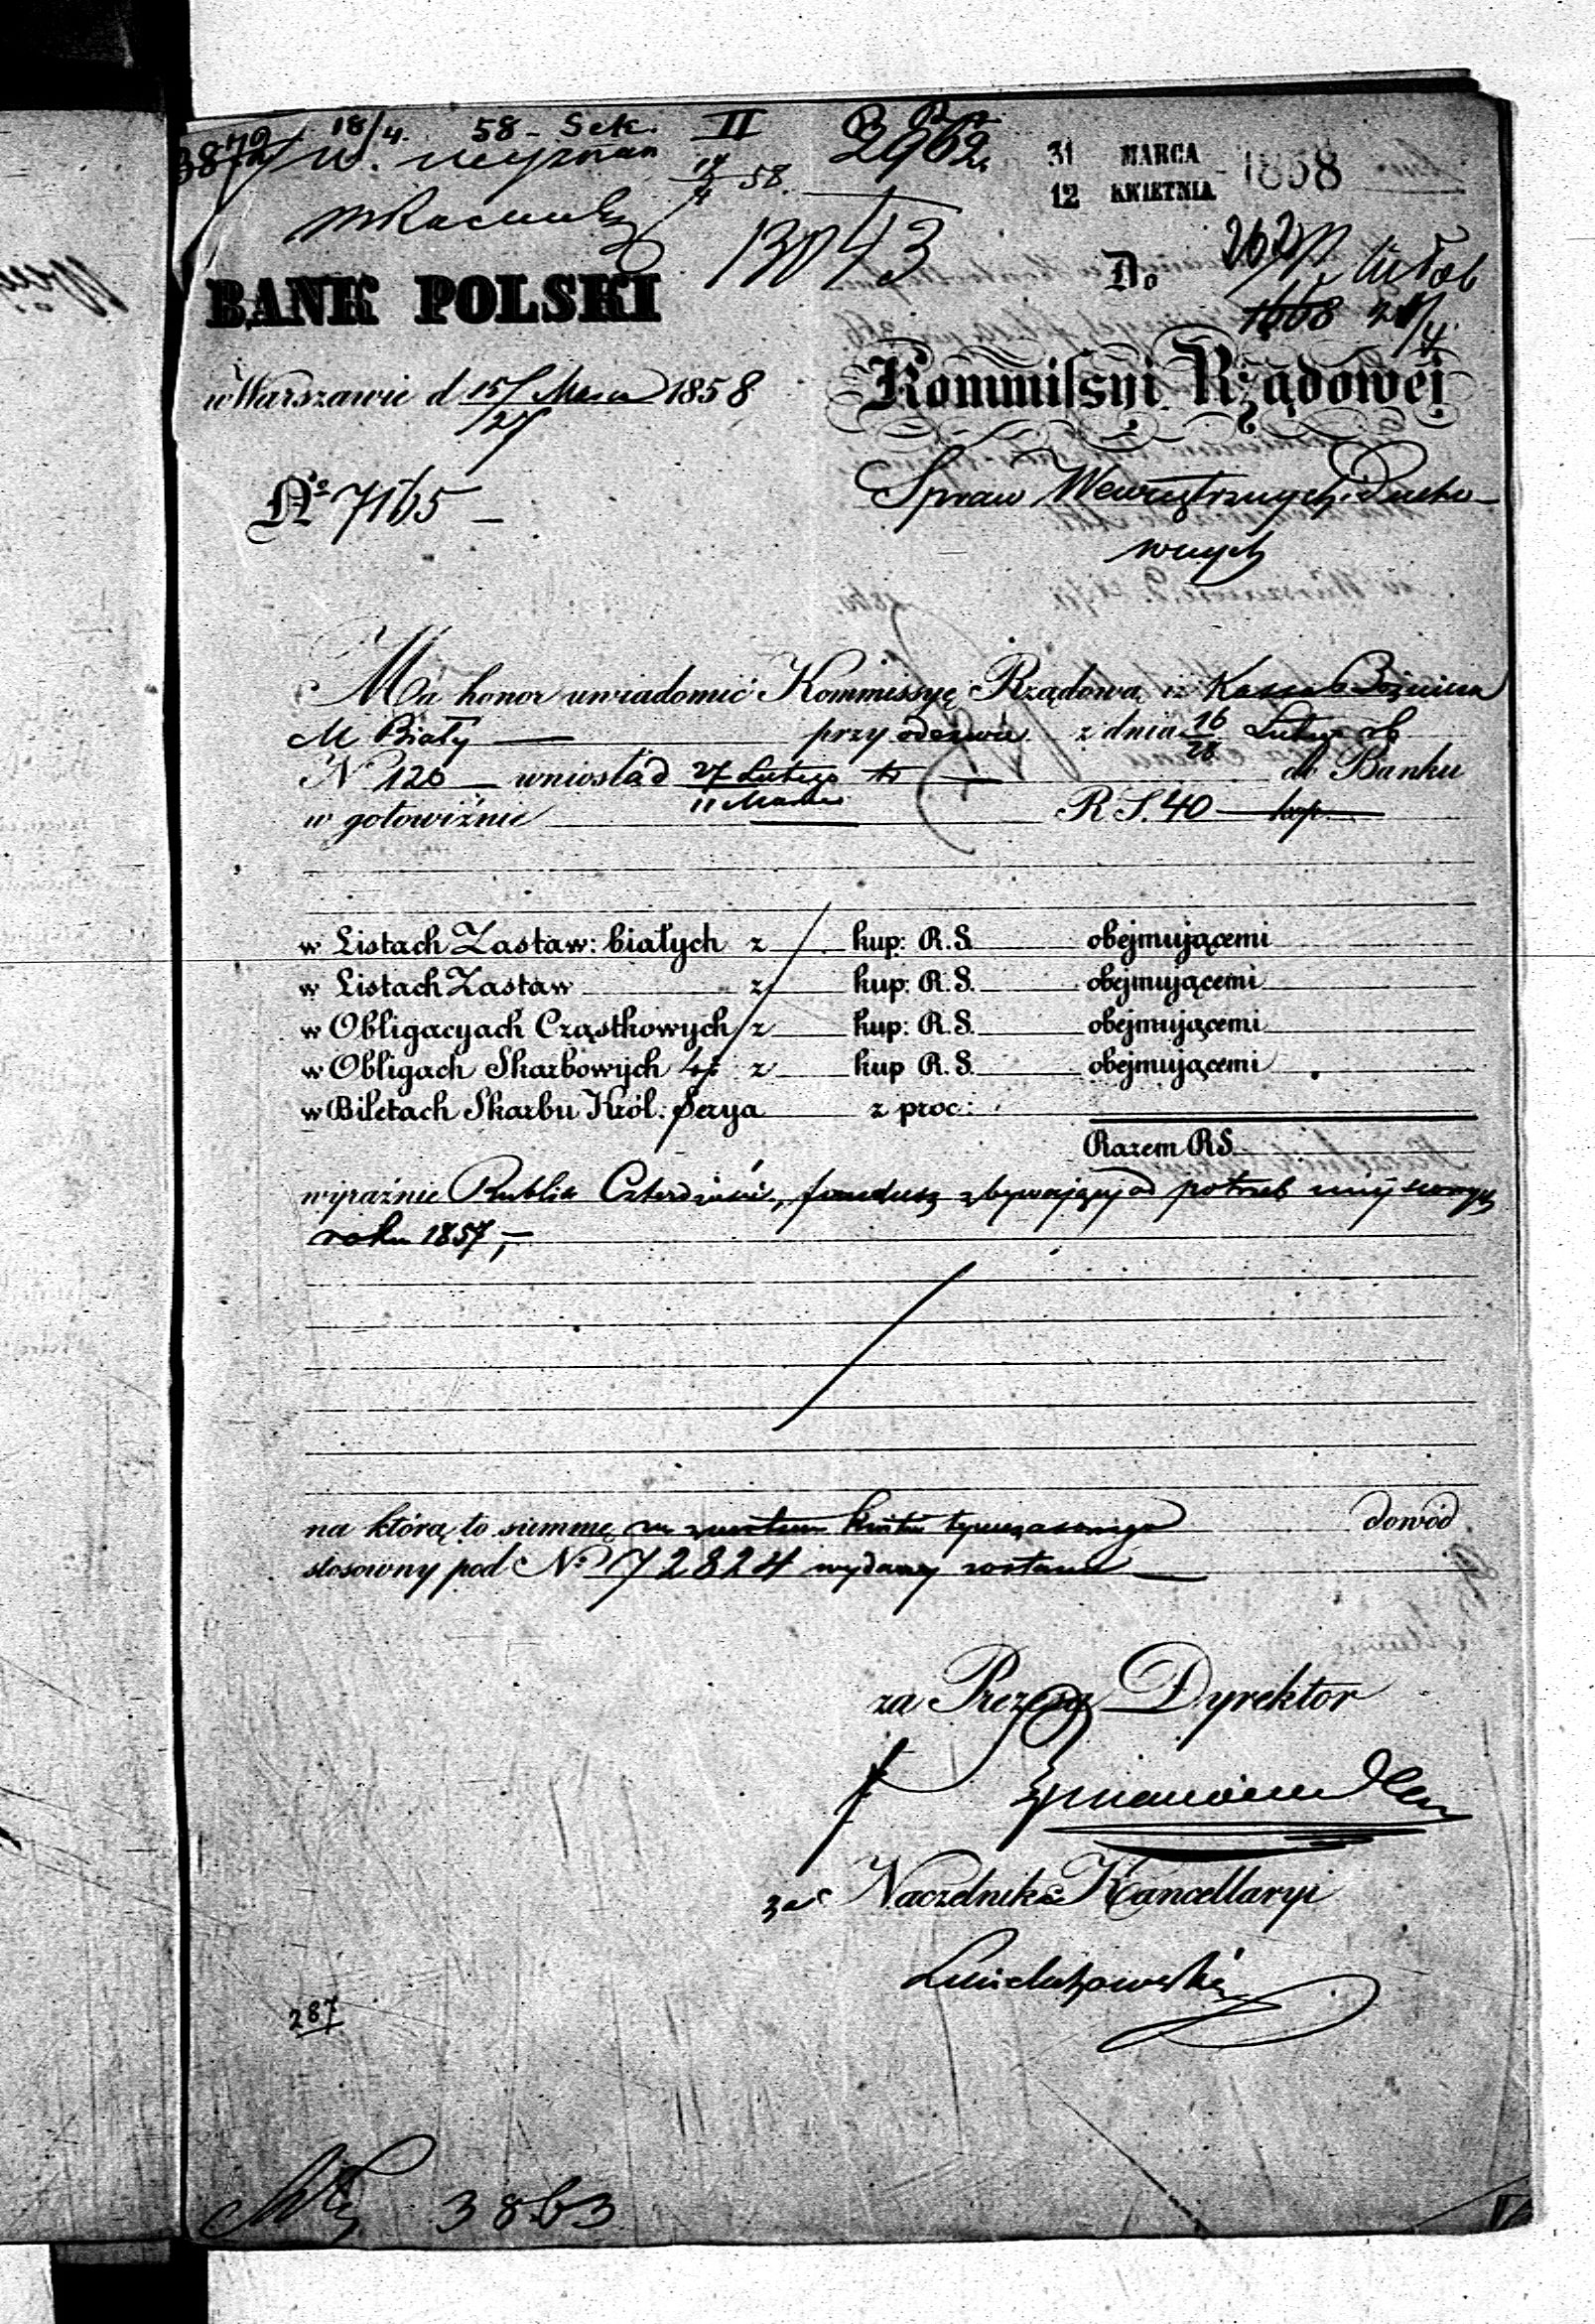 18/4. 58 - Sek. II
31 MARCA
12 KWIETNIA 1858
13043
BANK POLSKI
Do
w Warszawie d 15/27 Marca 1858
Kommissyi Rządowéj
No 7165 —
Spraw Wewnętrznych i Ducho-
wnych
Ma honor uwiadomić Kommissyę Rządową iż Kassa Bóżnicza
M Biały — przy odezwie z dnia 16/28 Lutego rb
N 126 — wniosła d 27 Lutego / 11 Marca tr — do Banku
w gotowiźnie — R S. 40 — kop —
w Listach Zastaw: białych z kup: R.S. obejmującemi
w Listach Zastaw z kup: R.S. obejmującemi
w Obligacyach Cząstkowych z kup: R.S. obejmującemi
w Obligach Skarbowych 4% z kup R.S. obejmującemi
w Biletach Skarbu Król: Serya z proc:
Razem RS
wyraźnie Rubli sr Czterdzieści, fundusz zbywający od potrzeb miejscowych
roku 1857, —
na którą to summę kwitu tymczasowego dowód
stosowny pod No 72824 wydany zostanie —
za Prezesa Dyrektor
za Naczelnika Kancellaryi
287
3863